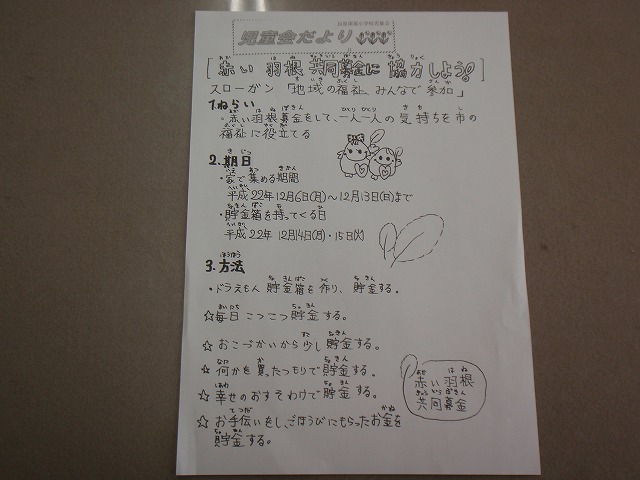 児童会だより
[赤い羽根共同募金に協力しよう!
スローガン「地域の福祉、みんなで参加」
1.ねらい
・赤い羽根募金をして、一人一人の気持ちを市の
福祉に役立てる
2.期日
・家で集める期間
平成22年12月6日(月)~12月13日(日)まで
・貯金箱を持ってくる日
平成22年12月14日(月)・15日(火)
3.方法
・ドラえもん貯金箱を作り、貯金する。
☆毎日こつこつ貯金する。
☆おこづかいから少し貯金する。
☆何かを買ったつもりで貯金する。
☆幸せのおすそわけで貯金する。
☆お手伝いをし、ごほうびにもらったお金を
貯金する。
赤い羽根
共同募金